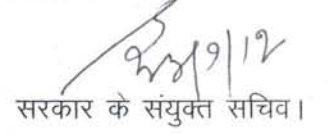 9/12
सरकार के संयुक्त सचिव।